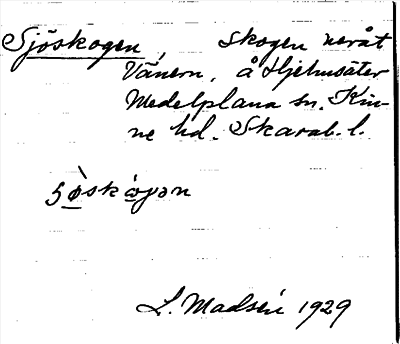 Sjöskogen, skogen neråt
Vänern, å Hjelmsäter
Medelplana sn. Kin-
ne hd. Skarab. l.
L. Madsén 1929